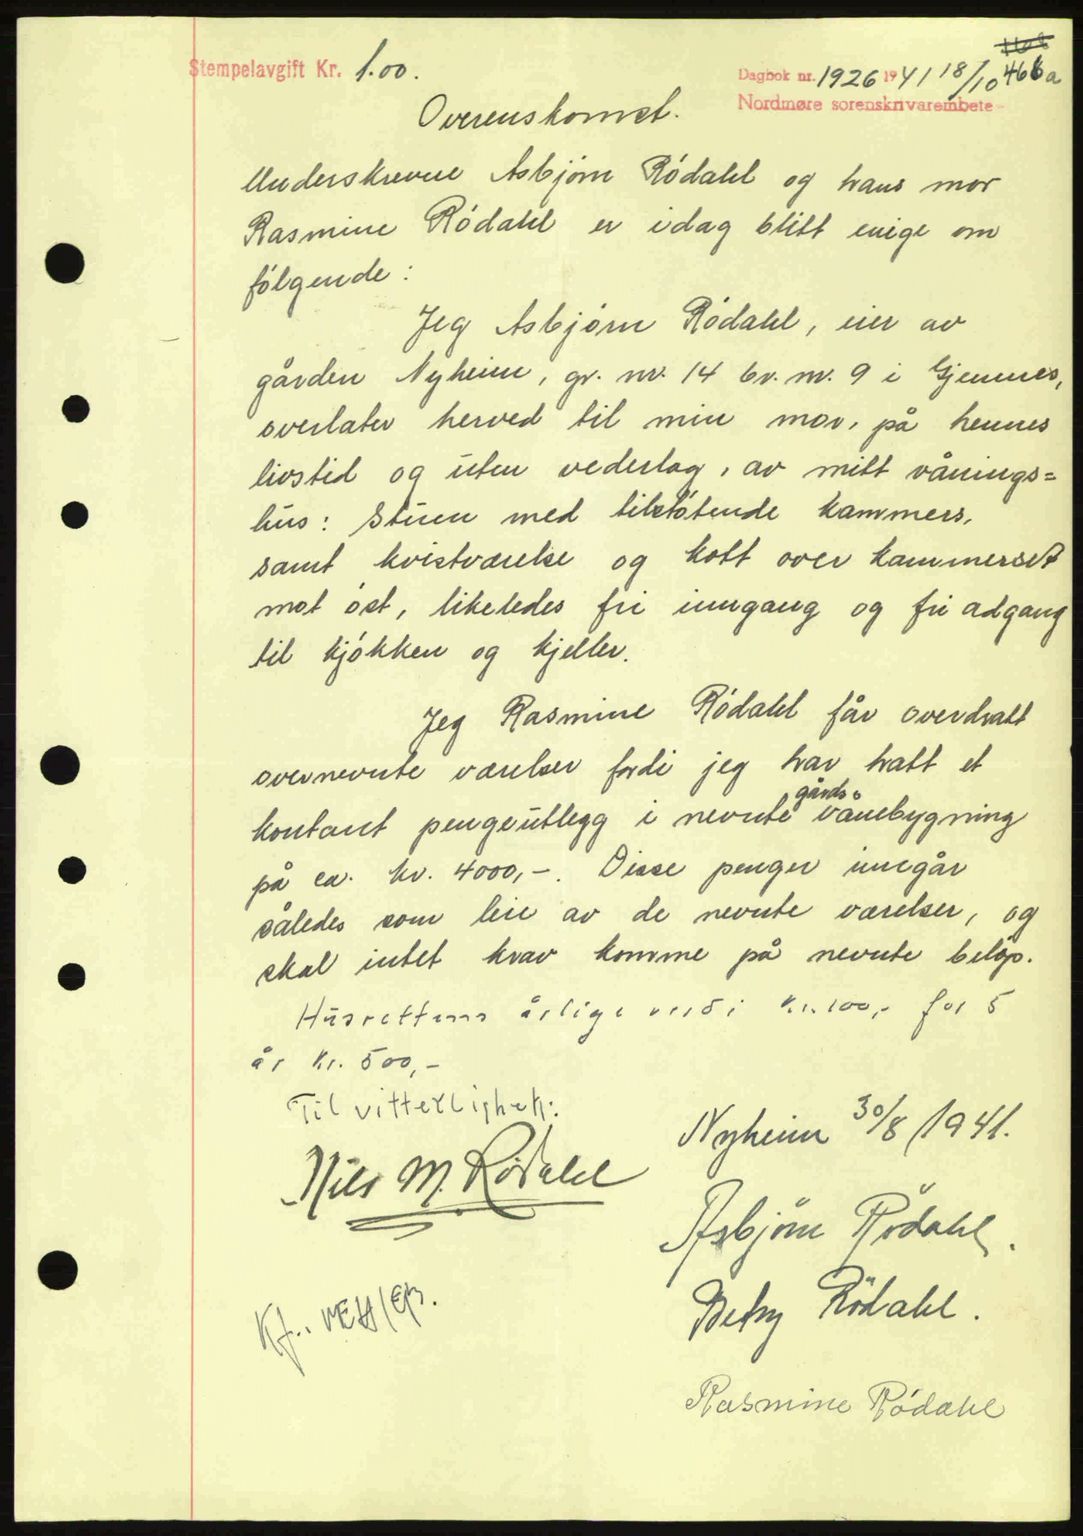 Stempelavgift Kr. 1.00.
Dagbok nr. 1926 1941 18/10 466a
Nordmøre sorenskrivarembete
Overenskomst.
Underskrevne Asbjørn Rødahl og hans mor
Rasmine Rødahl er idag blitt enige om
følgende:
Jeg Asbjørn Rødahl, eier av
gården Nyheim, gr. nr. 14 br. nr. 9 i Gjemnes,
overlater herved til min mor, på hennes
livstid og uten vederlag, av mitt vånings=
hus: Stuen med tilstøtende kammers,
samt kvistværelse og kott over kammerset
mot øst, likeledes fri inngang og fri adgang
til kjøkken og kjeller.
Jeg Rasmine Rødahl får overdratt
overnevnte værelser fordi jeg har hatt et
kontant pengeutlegg i nevnte gårds vånebygning
på ca. kr. 4000,-. Disse penger inngår
således som leie av de nevnte værelser, og
skal intet krav komme på nevnte beløp.
Husrettens årlige verdi kr. 100,- for 5
år kr. 500,-
Til vitterlighet:
Nyheim 30/8 1941.
Nils M. Rødahl
Asbjørn Rødahl.
Betzy Rødahl.
Rasmine Rødahl